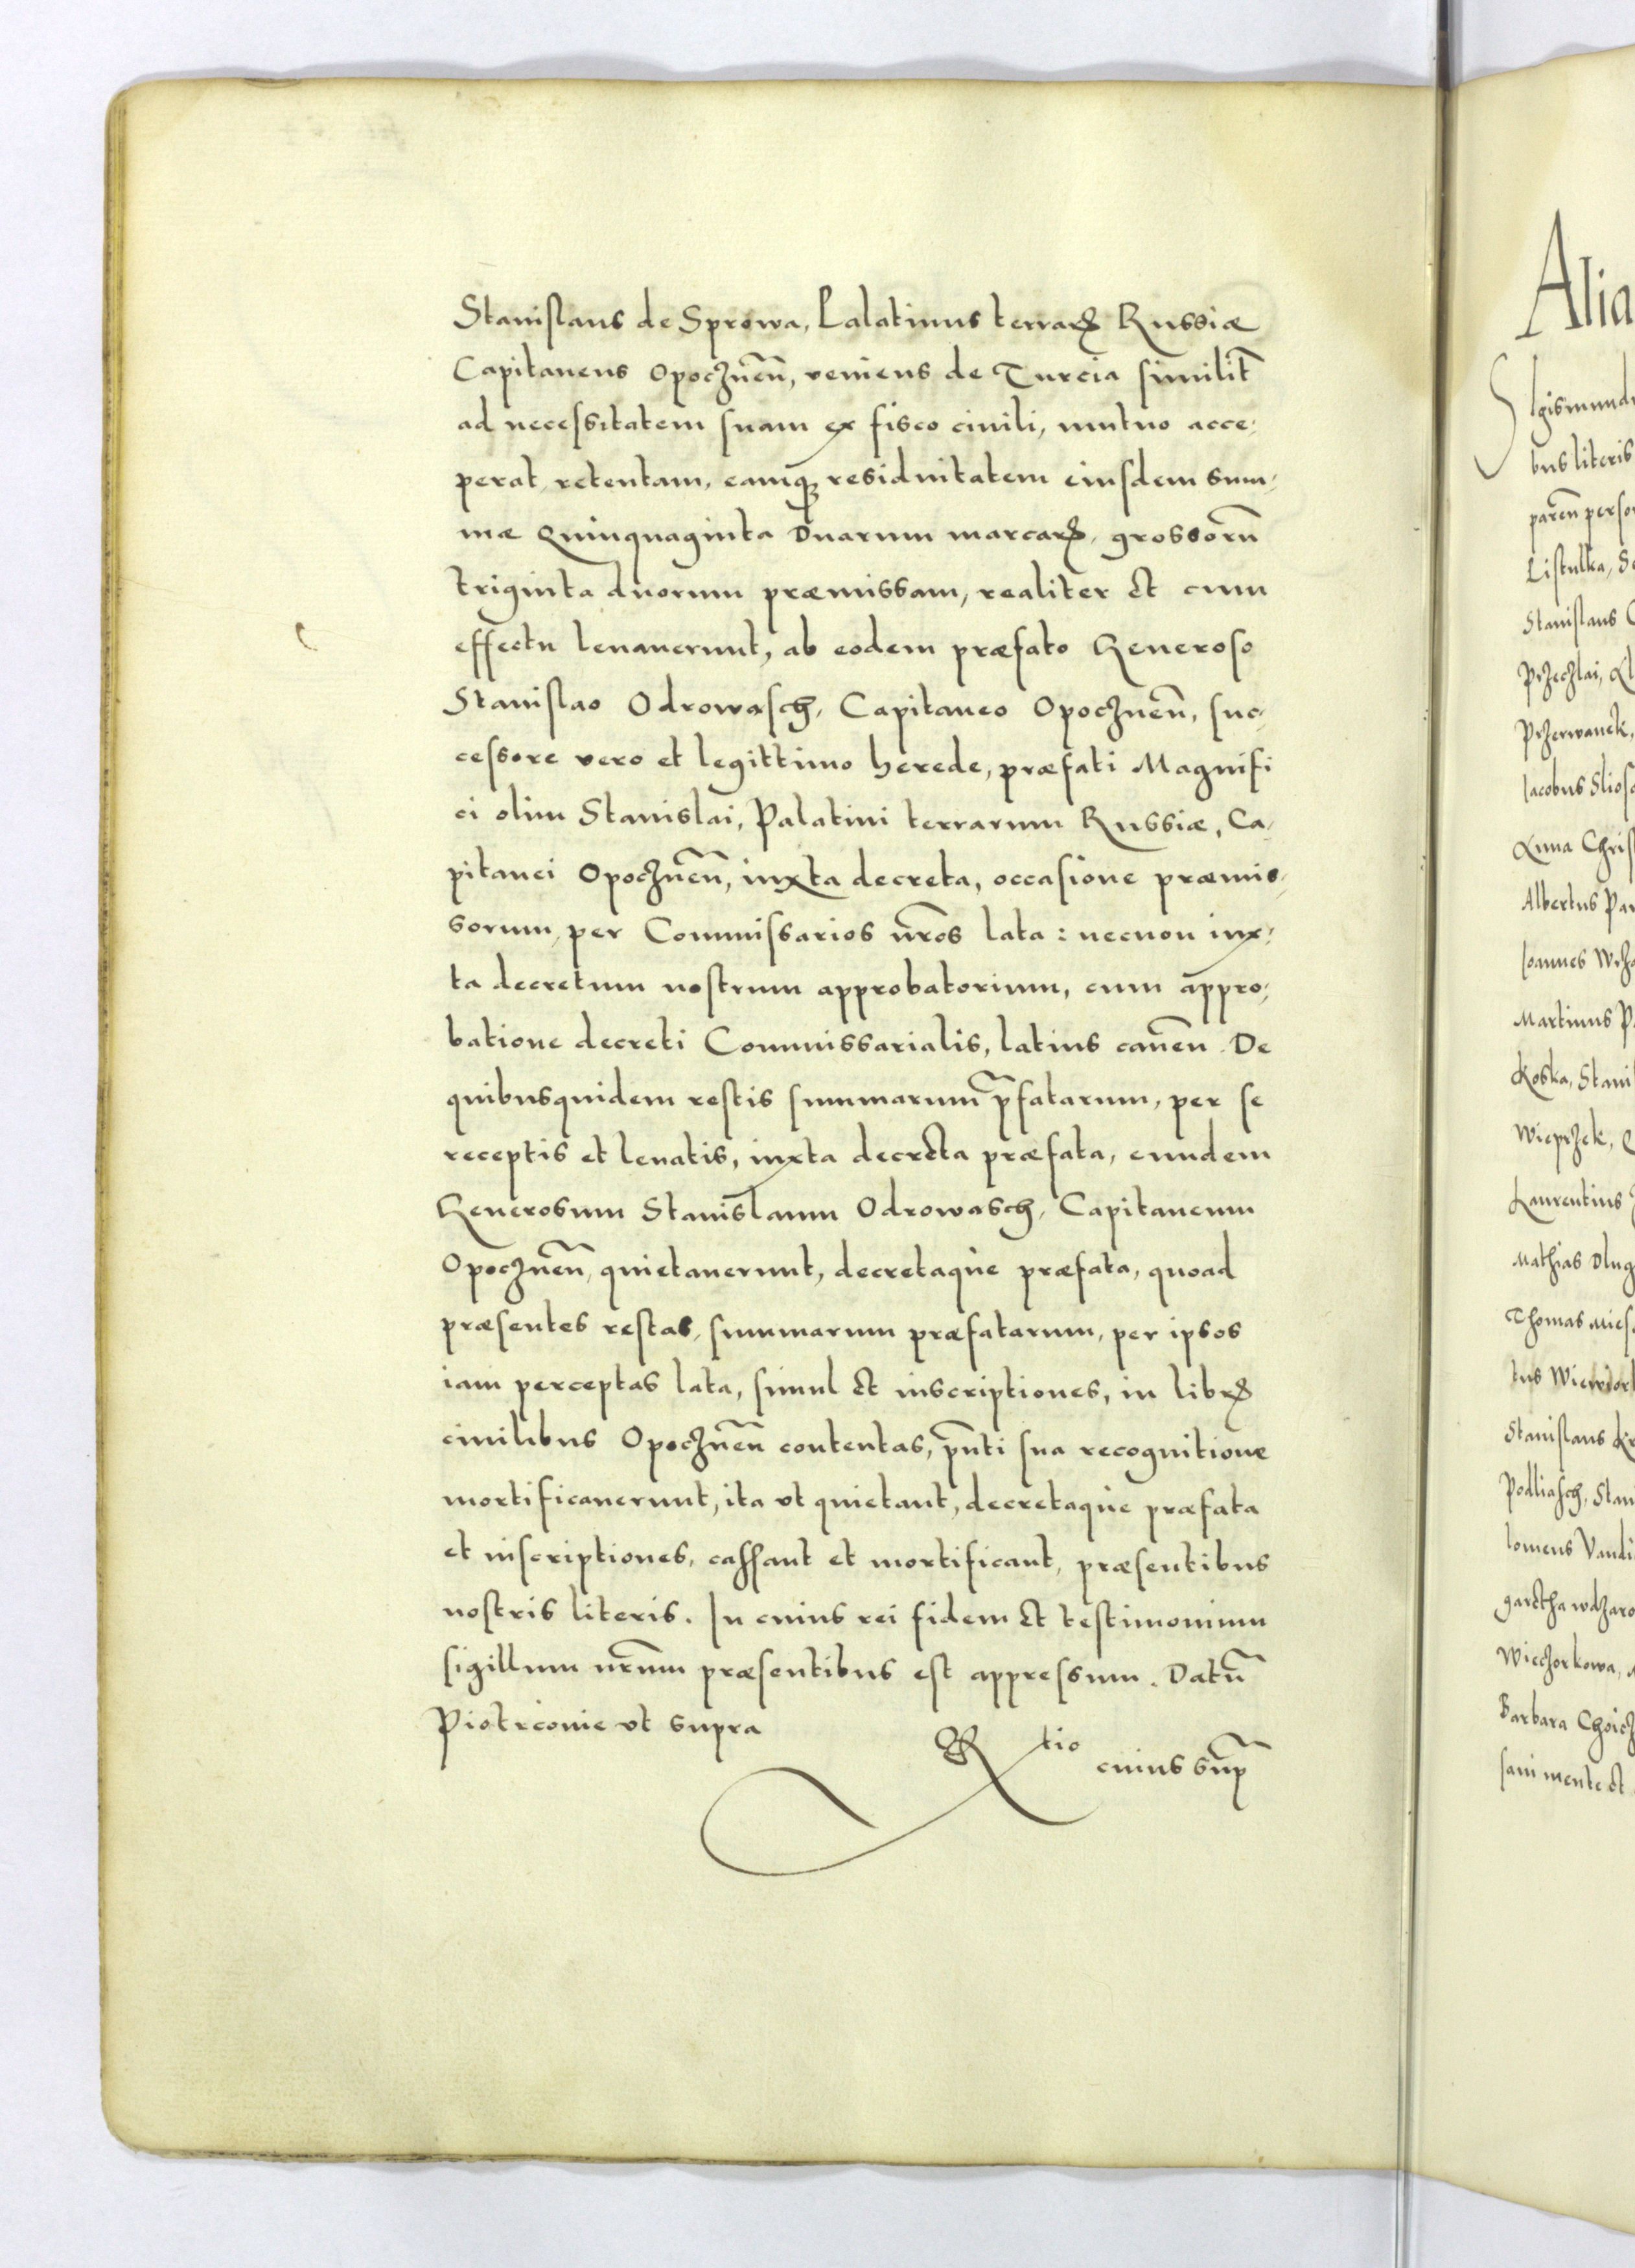 Stanislaus de Sprowa, Palatinus terrarꝝ Russiæ
Capitaneus Opocznen̄, veniens de Turcia similit̄
ad necessitatem suam ex fisco ciuili, mutuo acce,
perat, retentam, eamqꝫ residuitatem eiusdem sum,
mæ Quinquaginta Duarum marcarꝝ, grossorū
triginta duorum præmissam, realiter et cum
effectu leuauerunt, ab eodem præfato Generoso
Stanislao Odrowasch, Capitaneo Opocznen̄, suc,
cessore vero et legittimo herede, præfati Magnifi
ci olim Stanislai, Palatini terrarum Russiæ, Ca,
pitanei Opocznen̄, iuxta decreta, occasione præmis,
sorum, per Commissarios nr̄os lata: necnon iux,
ta decretum nostrum approbatorium, cum appro,
batione decreti Commissarialis, latius canen̄. De
quibusquidem restis summarum p̄fatarum, per se
receptis et leuatis, iuxta decreta præfata, eundem
Generosum Stanislaum Odrowasch, Capitaneum
Opocznen̄, quietauerunt, decretaque præfata, quoad
præsentes restas, summarum præfatarum, per ipsos
iam perceptas lata, simul et inscriptiones, in librꝝ
ciuilibus Opocznen̄ contentas, pn̄ti sua recognitione
mortificauerunt, ita vt quietant, decretaque præfata
et inscriptiones, cassant et mortificant, præsentibus
nostris literis. In cuius rei fidem et testimonium
sigillum nr̄um præsentibus est appressum. Datū
Piotrconie vt supra
Rtio cuius sup̄
Alia
Sigismund
bus literis
paren̄ perso
Listulka, S
Stanislaus
Przeczlai,
Przerwanek,
Jacobus Slios
Anna Chris
Albertus Pa
Joannes
Martinus P
Koska, Stani
Wieprzek,
Laurentius
Mathias Dlug
Thomas
tus
Stanislaus
Podliasch, Stan
lomeus
garetha
Wieczorkowa,
Barbara
sani mente et